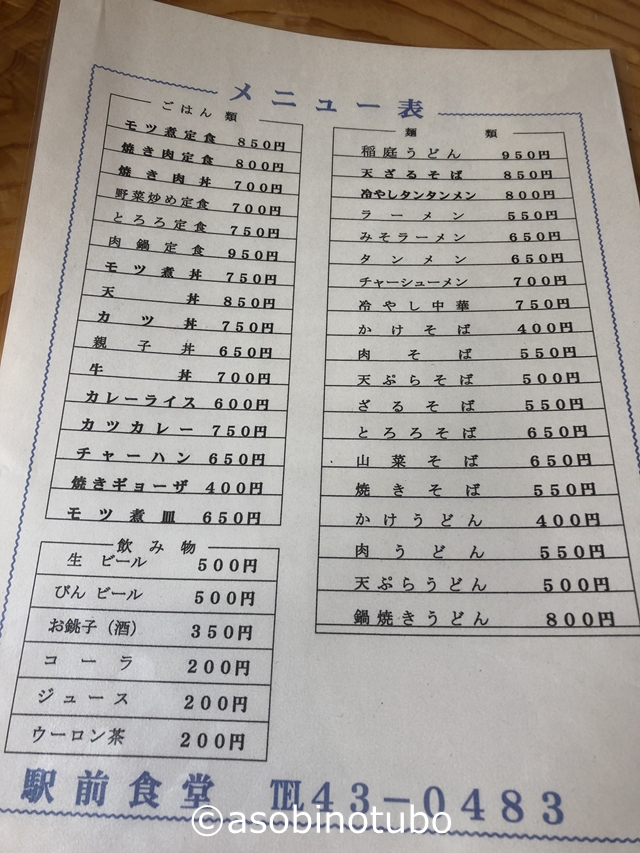 メニュー表
ごはん類
モツ煮定食 850円
焼き肉定食 800円
焼き肉丼 700円
野菜炒め定食 700円
とろろ定食 750円
肉鍋定食 950円
モツ煮丼 750円
天丼 850円
カツ丼 750円
親子丼 650円
牛丼 700円
カレーライス 600円
カツカレー 750円
チャーハン 650円
焼きギョーザ 400円
モツ煮皿 650円
飲み物
生ビール 500円
びんビール 500円
お銚子(酒) 350円
コーラ 200円
ジュース 200円
ウーロン茶 200円
麺類
稲庭うどん 950円
天ざるそば 850円
冷やしタンタンメン 800円
ラーメン 550円
みそラーメン 650円
タンメン 650円
チャーシューメン 700円
冷やし中華 750円
かけそば 400円
肉そば 550円
天ぷらそば 500円
ざるそば 550円
とろろそば 650円
山菜そば 650円
焼きそば 550円
かけうどん 400円
肉うどん 550円
天ぷらうどん 500円
鍋焼きうどん 800円
駅前食堂 ℡43-0483
©asobinotubo